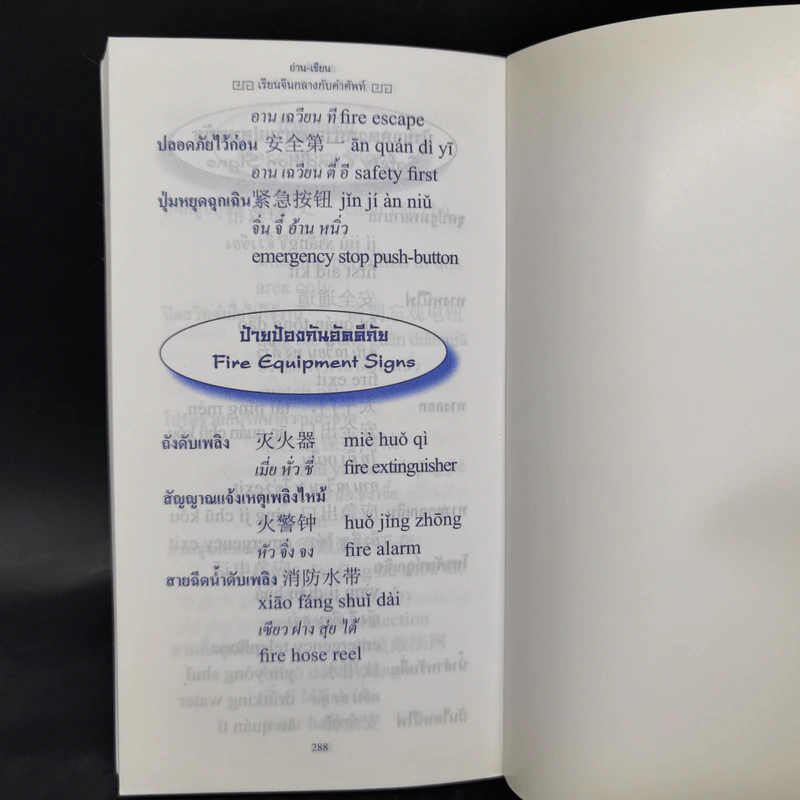 อ่าน-เขียน
เรียนจีนกลางกับคำศัพท์
อาน เฉวียน ที fire escape
ปลอดภัยไว้ก่อน 安全第一 ān quán dì yī
อาน เฉวียน ตี้ อี safety first
ปุ่มหยุดฉุกเฉิน 紧急按钮 jǐn jí àn niǔ
จิ่น จี๋ อ้าน หนิ่ว
emergency stop push-button
ป้ายป้องกันอัคคีภัย
Fire Equipment Signs
ถังดับเพลิง 灭火器 miè huǒ qì
เมี่ย หั่ว ชี่ fire extinguisher
สัญญาณแจ้งเหตุเพลิงไหม้
火警钟 huǒ jǐng zhōng
หัว จิ่ง จง fire alarm
สายฉีดน้ำดับเพลิง 消防水带
xiāo fáng shuǐ dài
เซียว ฝาง สุ่ย ไต้
fire hose reel
288